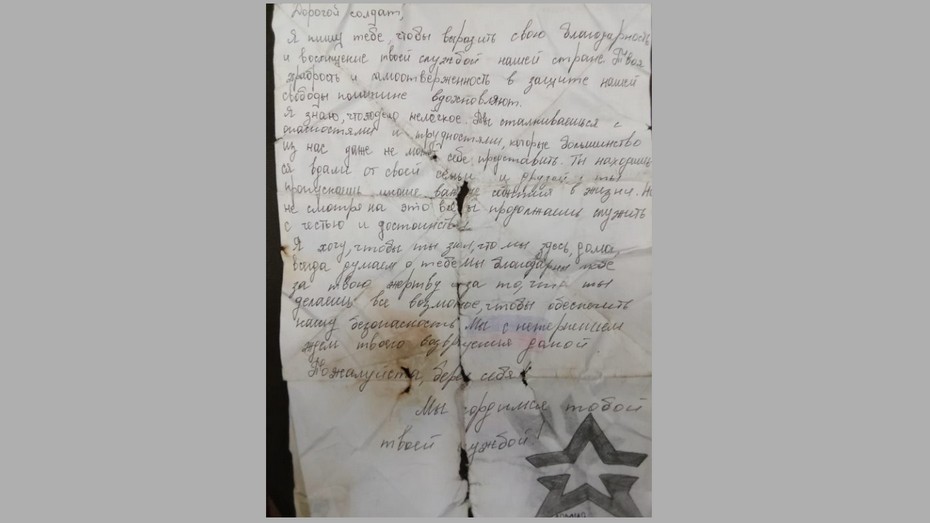 Дорогой солдат!
Я пишу тебе, чтобы выразить свою благодарность
и восхищение твоей службой нашей стране. Твоя
храбрость и самоотверженность в защите нашей
свободы поистине вдохновляют.
Я знаю, что нелёгкое. Вы сталкиваешься с
опасностями и трудностями, которые большинство
из нас даже не может себе представить. Ты находишь
ся вдали от своей семьи и друзей и ты
пропускаешь многие важные события в жизни. Но
не смотря на это все ты продолжаешь служить
с честью и достоинством
Я хочу, чтобы ты знал, что мы здесь, дома,
всегда думаем о тебе. Мы благодарны тебе
за твою жертву и за то, что ты
делаешь все возможное, чтобы обеспечить
нашу безопасность. Мы с нетерпением
ждем твоего возвращения домой.
Пожалуйста, береги себя!
Мы гордимся тобой
твоей службой!